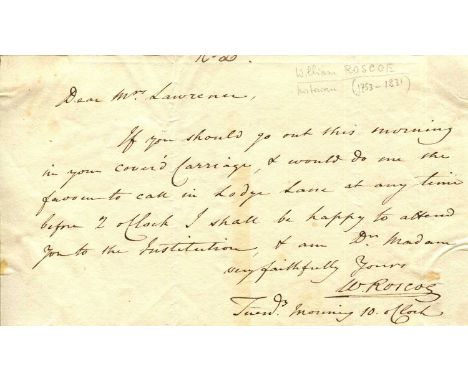 William ROSCOE
historian (1753-1831)
Dear Mrs Lawrence,
If you should go out this morning
in your cover'd Carriage, & would do me the
favour to call in Lodge Lane at any time
before 2 oClock I shall be happy to attend
You to the Institution, & am Dr Madam
very faithfully Yours
W Roscoe
Tuesd. Morning 10. oClock